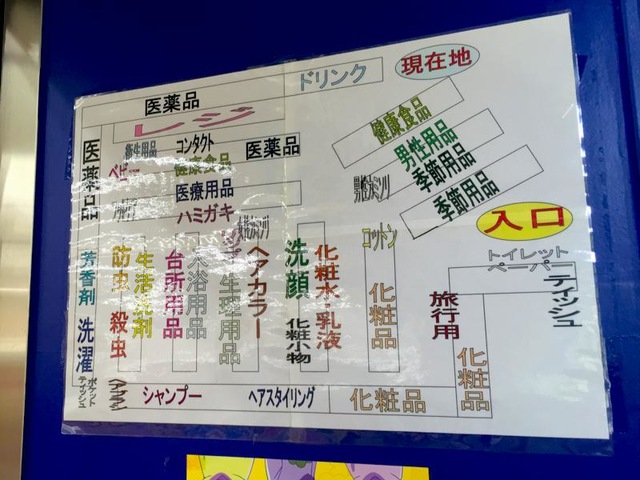 ドリンク
現在地
医薬品
レジ
健康食品
男性用品
季節用品
季節用品
入口
医薬品
衛生用品
コンタクト
健康食品
医薬品
ベビー
医療用品
ハミガキ
コットン
トイレット
ペーパー
ティッシュ
芳香剤
洗濯
防虫
殺虫
生活洗剤
台所用品
入浴用品
生理用品
ヘアカラー
洗顔
化粧水・乳液
化粧小物
化粧品
旅行用
化粧品
ポケット
ティッシュ
シャンプー
ヘアスタイリング
化粧品